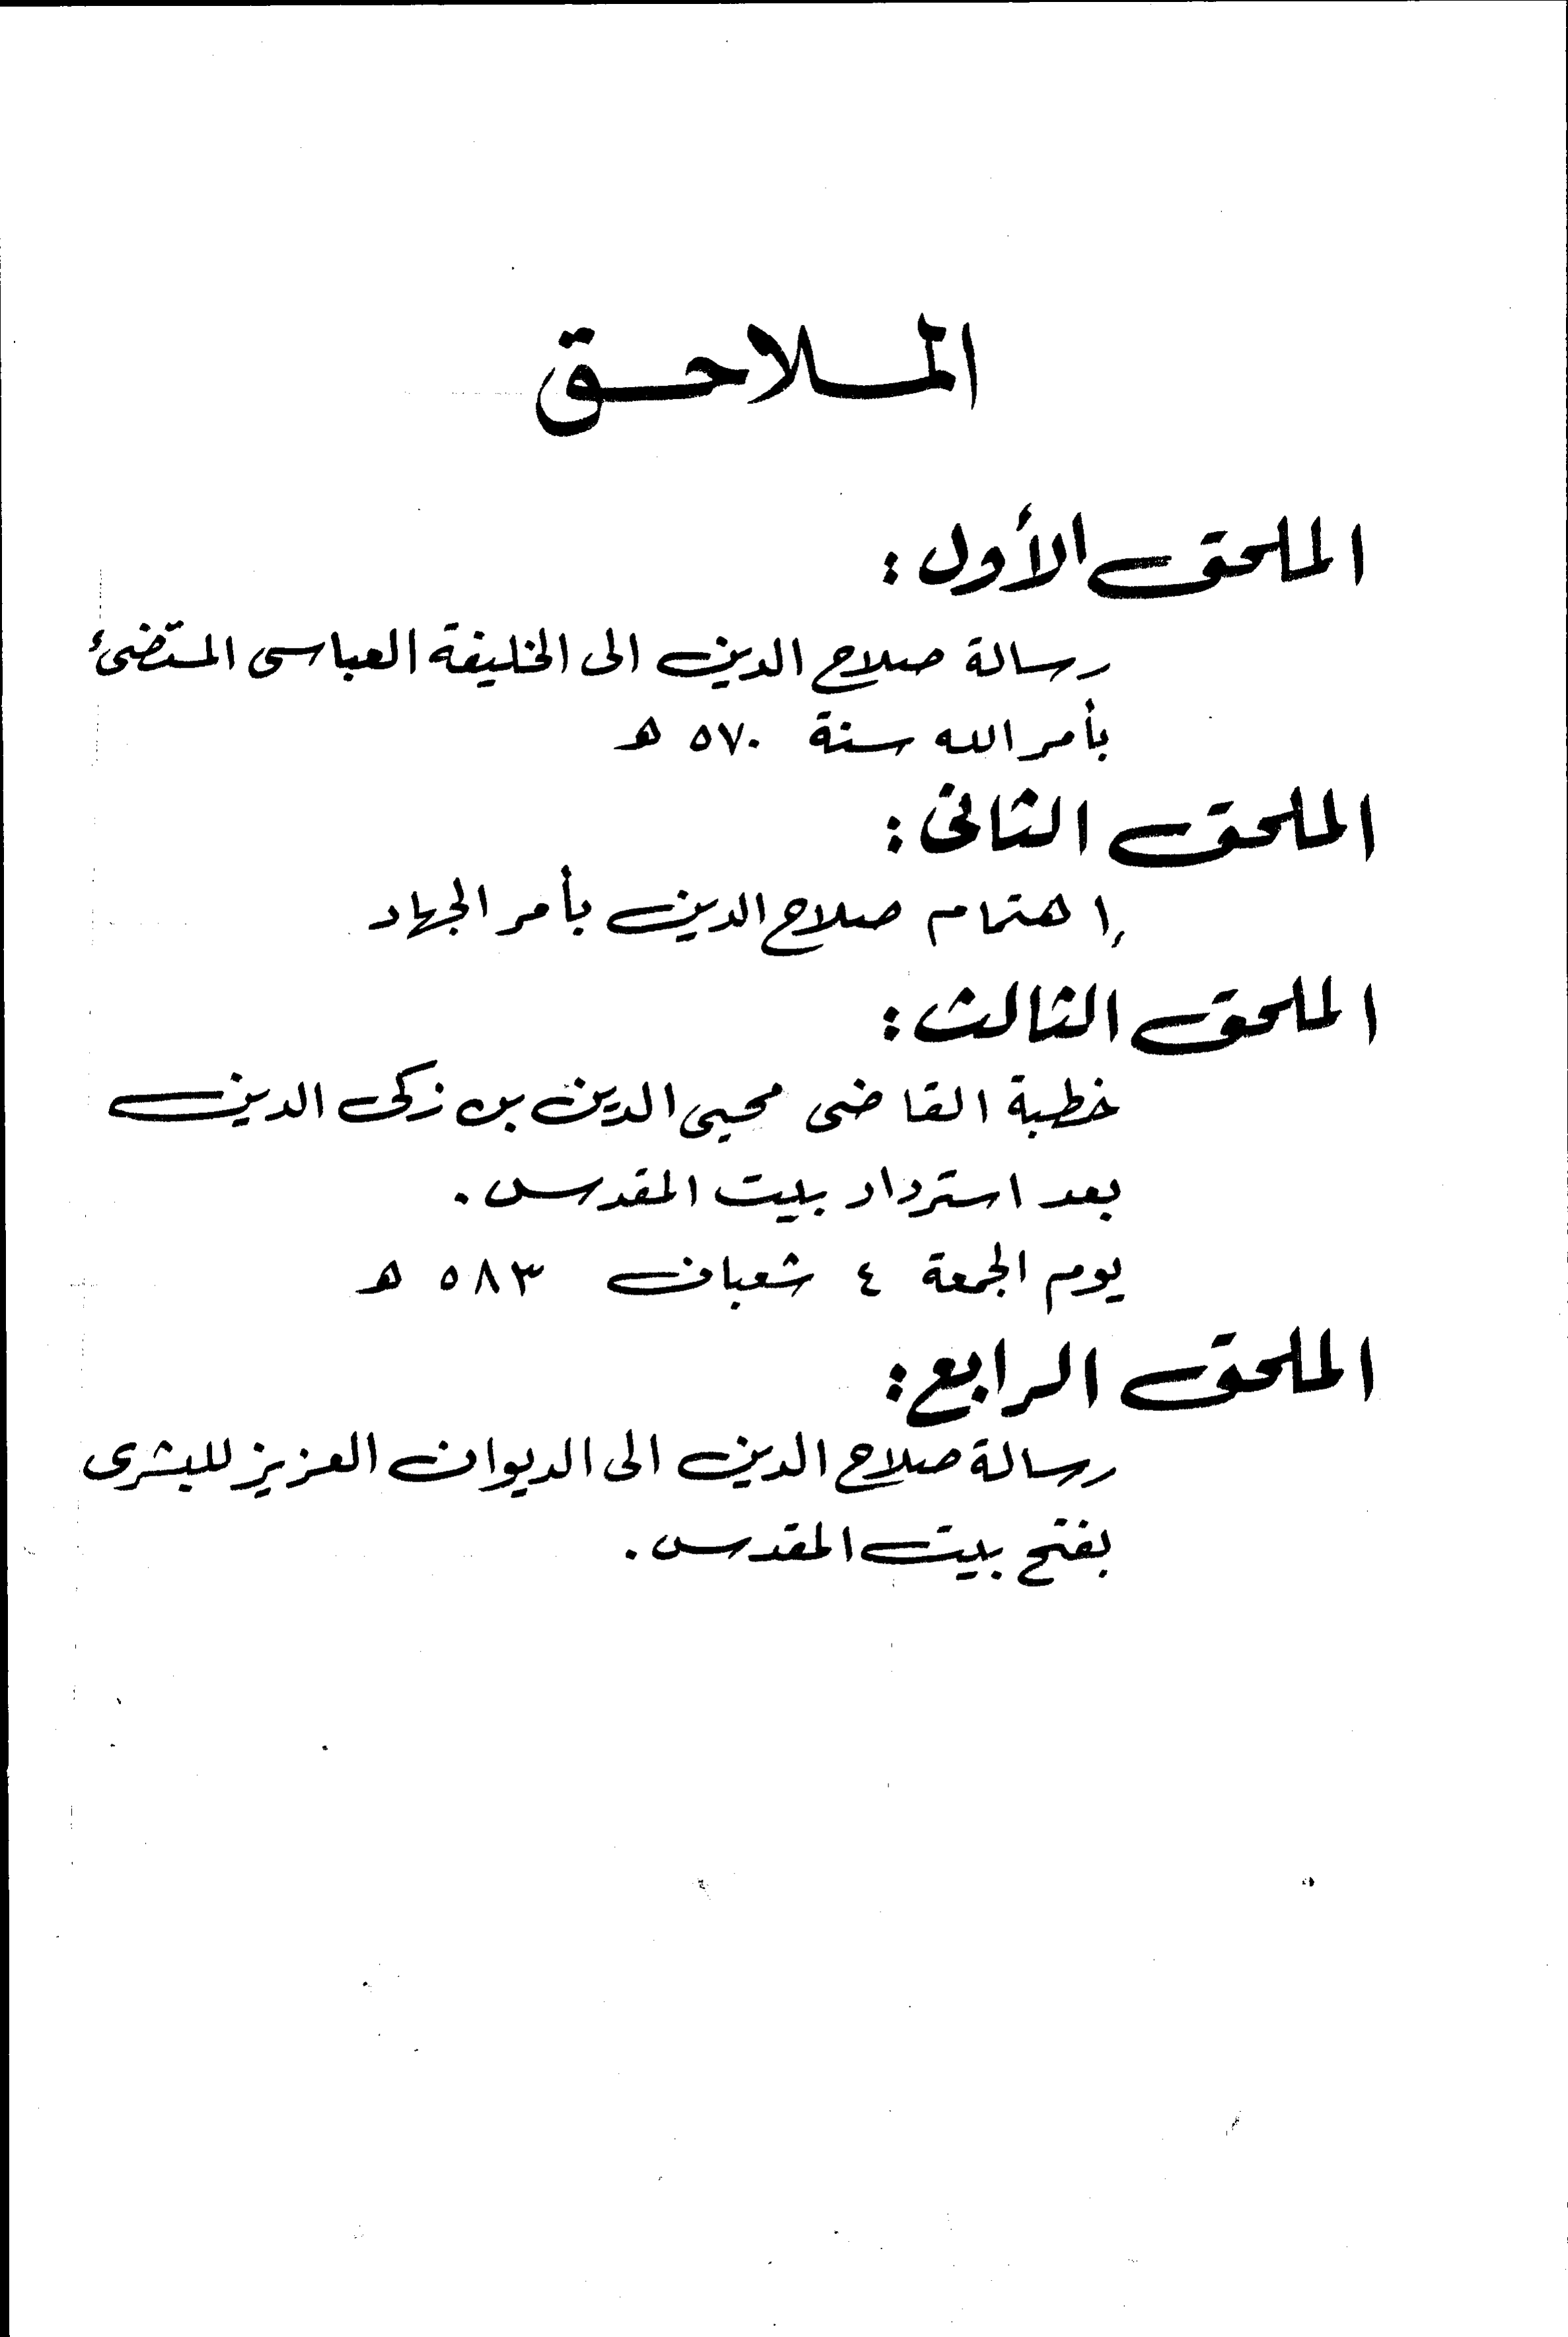 الملاحق
الملحق الأول :
رسالة صلاح الدين الى الخليفة العباسى المستضىء
بأمر الله سنة ٥٧٠ هـ
الملحق الثانى :
إهتمام صلاح الدين بأمر الجهاد
الملحق الثالث :
خطبة القاضى محيى الدين بن زكى الدين
بعد استرداد بيت المقدس .
يوم الجمعة ٤ شعبان ٥٨٣ هـ
الملحق الرابع :
رسالة صلاح الدين الى الديوان العزيز للبشرى
بفتح بيت المقدس .